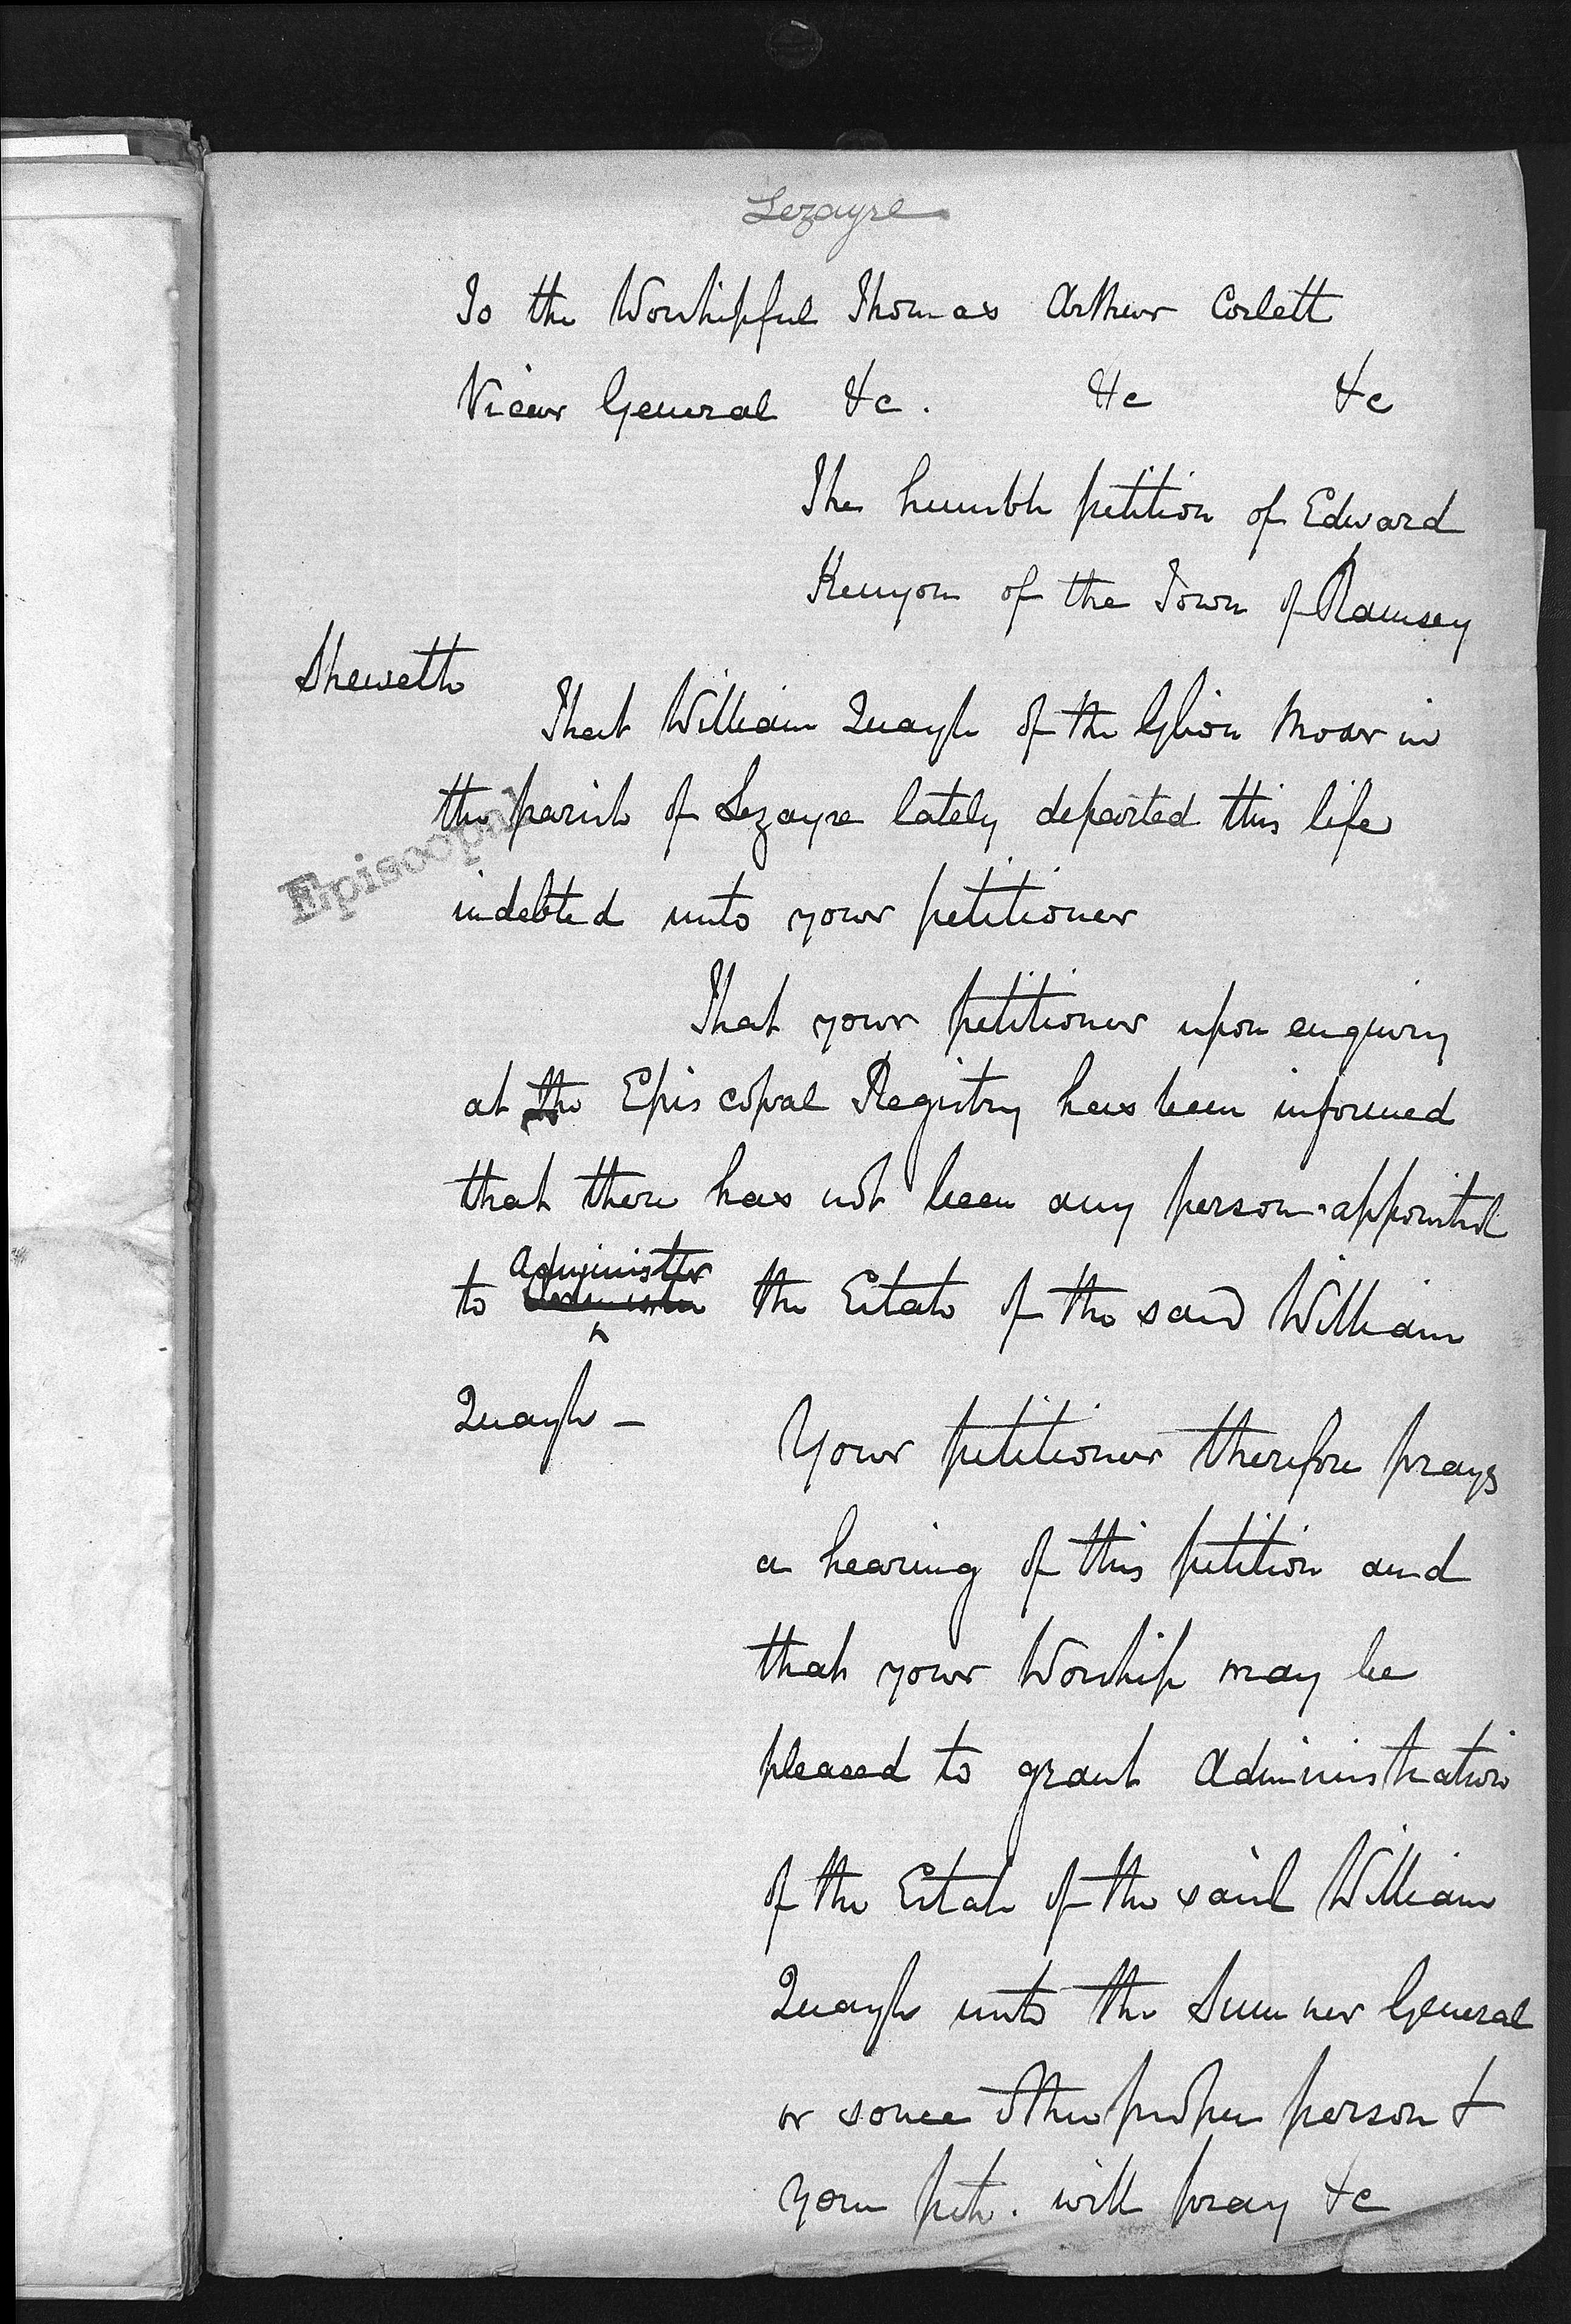 Lezayre
To the Worshipful Thomas Arthur Corlett
Vicar General &c. &c &c
The humble petition of Edward
Kenyon of the Town of Ramsey
Sheweth
That William Quayle of the Glion Moar in
the parish of Lezayre lately departed this life
Episcopal
indebted unto your petitioner
That your petitioner upon enquiry
at the Episcopal Registry has been informed
that there has not been any person appointed
to administer the Estate of the said William
Quayle —
Your petitioner therefore prays
a hearing of this petition and
that your Worship may be
pleased to grant Administration
of the Estate of the said William
Quayle unto the Sumner General
or some other proper person &
your petr. will pray &c